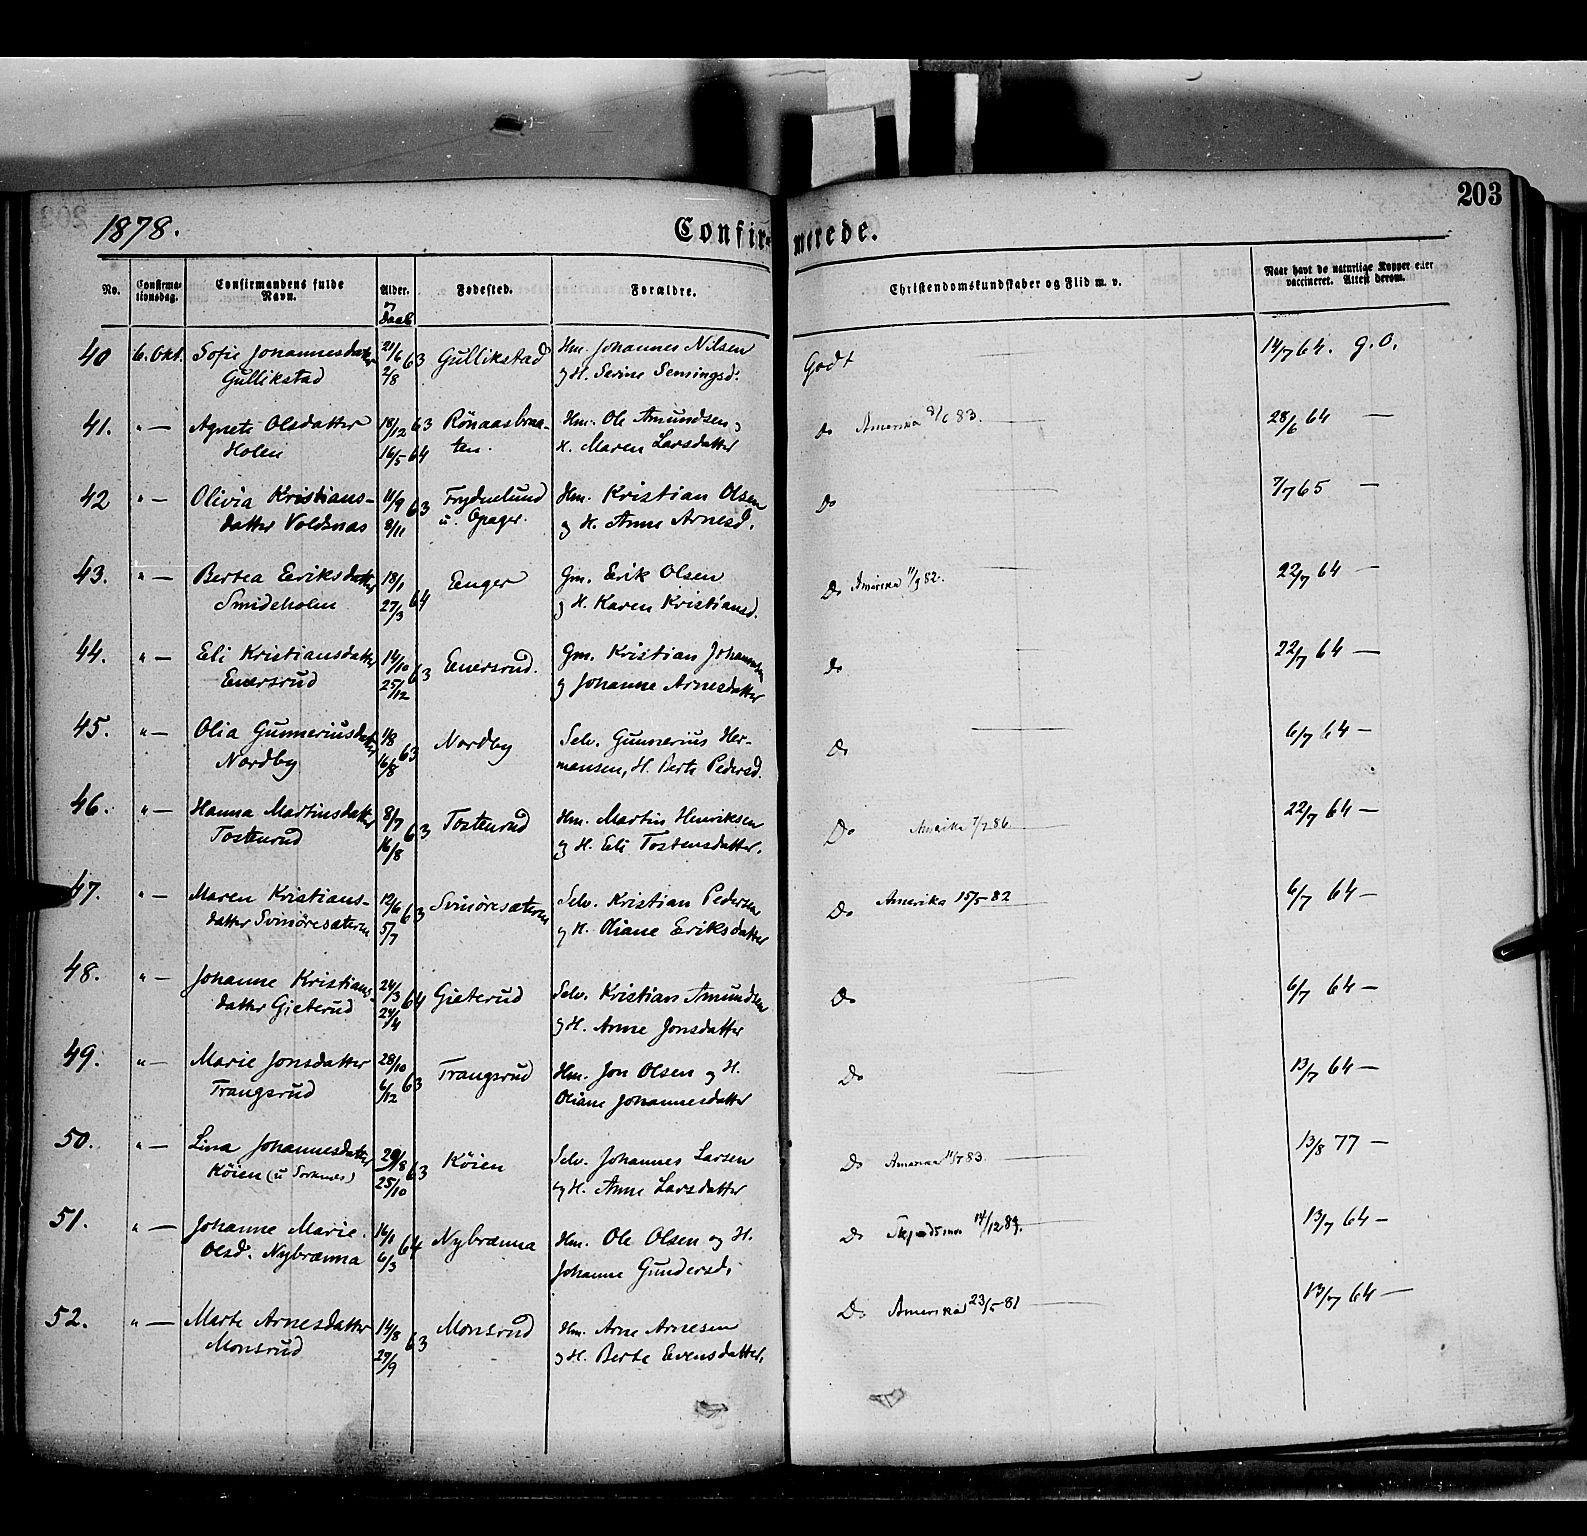 203
1878.
Confirmerede.
No.
Confirmationsdag.
Confirmandens fulde Navn.
Alder.
og Daab
Fødested.
Forældre.
Christendomskundskaber og Flid m. v.
Naar havt de naturlige Kopper eller vaccineret. Attest derom.
40 6. Okt. Sofie Johannesdatter 21/6 63 Gullikstad Hm. Johannes Nilsen Godt 14/7 64. g. O.
Gullikstad 2/8 og H. Serine
41. " — Agnete Olsdatter 18/12 63 Rönaasbraa- Hm. Ole Amundsen og Do Amerika 83. 28/6 64 —
Holen 16/5 64 ten. H. Maren Larsdatter
42 " — Olivia Kristians- 11/9 63 Frydnelund Hm. Kristian Olsen Do 7/7 65 —
datter Voldsnæs 8/11 u. Opager. og H. Anne Arnesd.
43. " — Bertea Eriksdatter 18/1 64 Enger Gm. Erik Olsen Do Amerika 82. 22/7 64 —
Smideholen 27/3 og H. Karen Kristiansd.
44. " — Eli Kristiansdatter 14/10 63 Enersrud. Gm. Kristian Johannesen Do 22/7 64 —
Enersrud 25/12 og Johanne Arnesdatter
45. " — Olia Gunneriusdatter 1/8 63 Nordby Selv. Gunnerius Her- Do 6/7 64 —
Nordby 16/8 mansen, H. Berte Pedersd.
46. " — Hanna Martinsdatter 8/7 63 Tostenrud Hm. Martin Henriksen Do Amerika 7/7 86. 22/7 64 —
Tostenrud 16/8 og H. Eli Tostensdatter.
47. " — Maren Kristians- 12/6 63 Svinöresæteren Selv. Kristian Pedersen Do Amerika 15/5 - 82 6/7 64 —
datter Svinöresæteren 5/7 og H. Oliane Eriksdatter
48. " — Johanne Kristians- 24/3 64 Gieterud Selv. Kristian Amundsen Do 6/7 64 —
datter Gieterud 24/4 og H. Anne Jonsdatter
49. " — Marie Jonsdatter 28/10 63 Trangsrud Hm. Jon Olsen og H. Do 13/7 64 —
Trangsrud 6/12 Oliane Johannesdatter
50. " — Lina Johannesdatter 29/8 63 Köien Selv. Johannes Larsen Do Amerika 83. 13/8 77 —
Köien (u Sorknes) 25/10 og H. Anne Larsdatter
51. " — Johanne Marie 16/1 64 Nybrænna Hm. Ole Olsen og H. Do 14/12 89. 13/7 64 —
Olsd. Nybrænna 6/3 Johanne Gundersd.
52. " — Marte Arnesdatter 14/8 63 Monsrud Hm. Arne Arnesen Do Amerika 23/5 - 81 13/7 64 —
Monsrud 27/9 og H. Berte Evensdatter.